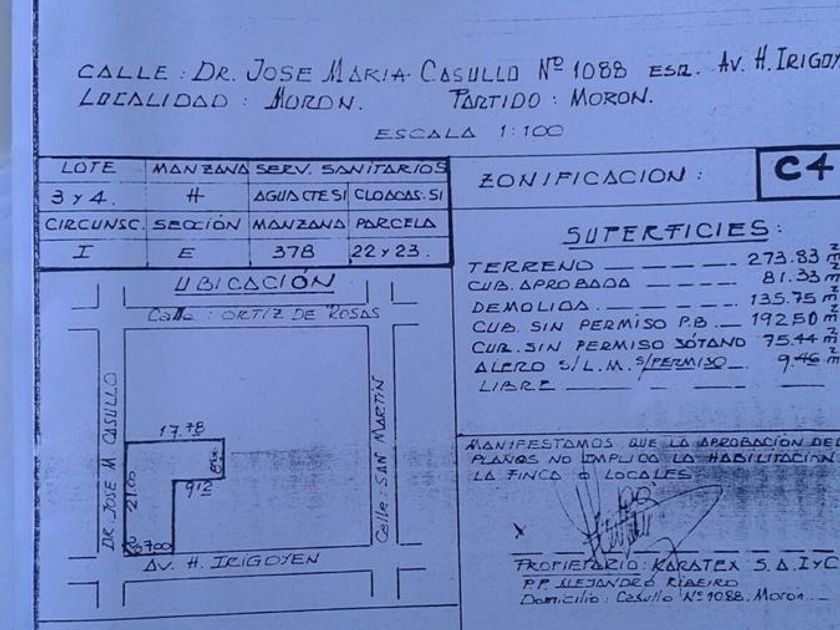 CALLE : DR. JOSE MARIA CASULLO Nº 1088 ESQ. AV. H. IRIGOY
LOCALIDAD : MORON. PARTIDO : MORON.
ESCALA 1:100
LOTE MANZANA SERV. SANITARIOS
3 y 4. H AGUA CTE SI CLOACAS: SI
CIRCUNSC. SECCIÓN MANZANA PARCELA
I E 378 22 y 23.
UBICACIÓN
Calle : ORTIZ DE ROSAS
DR. JOSE M. CASULLO
Calle : SAN MARTIN
17.78
9.12
21.00
AV. H. IRIGOYEN
ZONIFICACION : C4
SUPERFICIES :
TERRENO 273.83 m2
CUB. APROBADA 81.33 m2
DEMOLIDA 135.75 m2
CUB. SIN PERMISO P.B. 192.50 m2
CUB. SIN PERMISO SÓTANO 75.44 m2
ALERO S/L.M. S/PERMISO 9.46 m2
LIBRE
MANIFESTAMOS QUE LA APROBACION DEL
PLANOS NO IMPLICA LA HABILITACION
LA FINCA O LOCALES
PROPIETARIO : KARATEX S.A.I y C
P.P. ALEJANDRO RIBEIRO
Domicilio : Casullo Nº 1088. Moron.